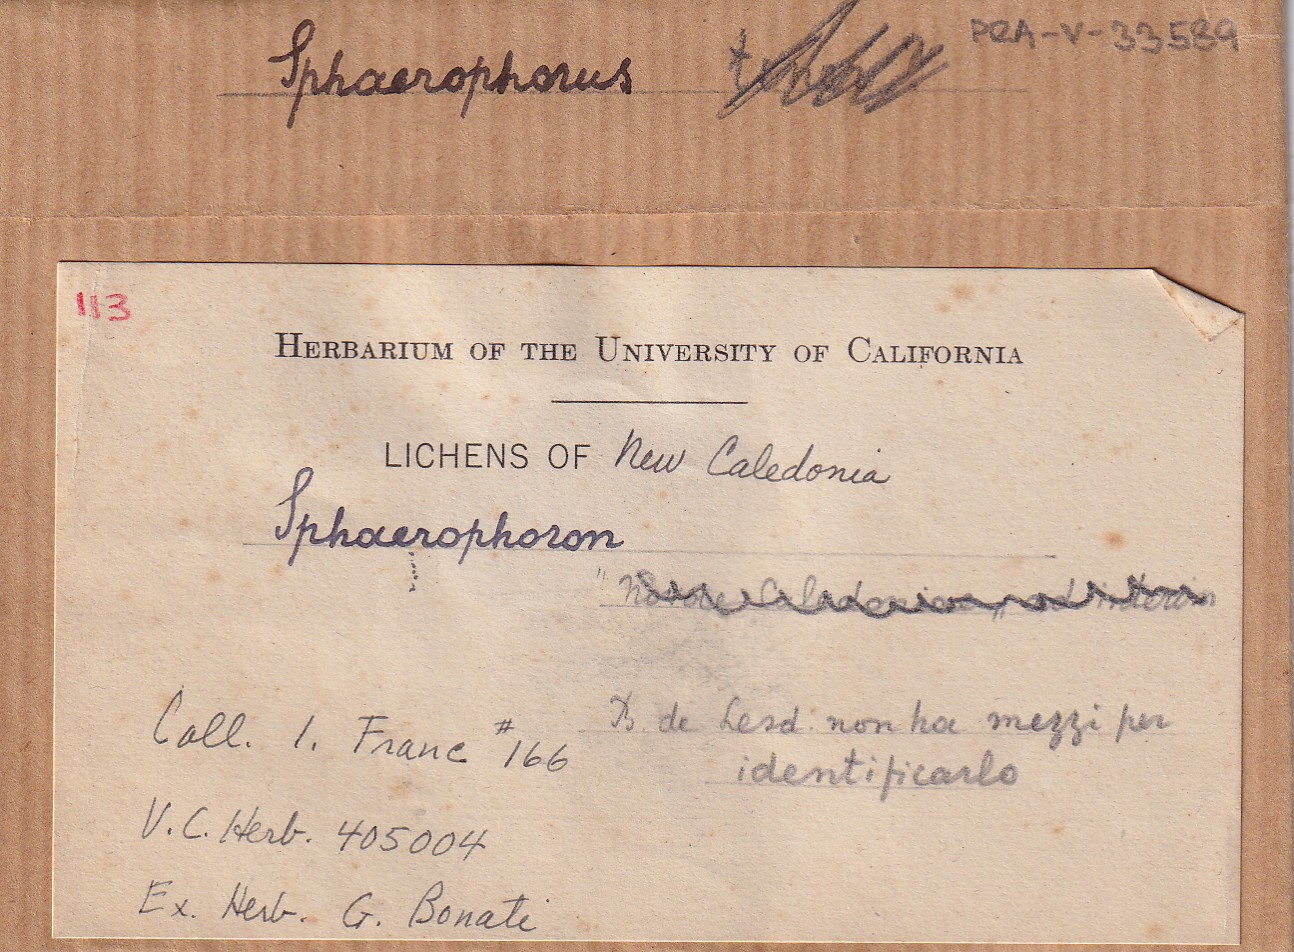 PRA-V-33589
Sphaerophorus
113
HERBARIUM OF THE UNIVERSITY OF CALIFORNIA
LICHENS OF New Caledonia
Sphaerophoron
B. de Lesd. non ha mezzi per
identificarlo
Coll. I. Franc #166
U.C. Herb. 405004
Ex. Herb. G. Bonati